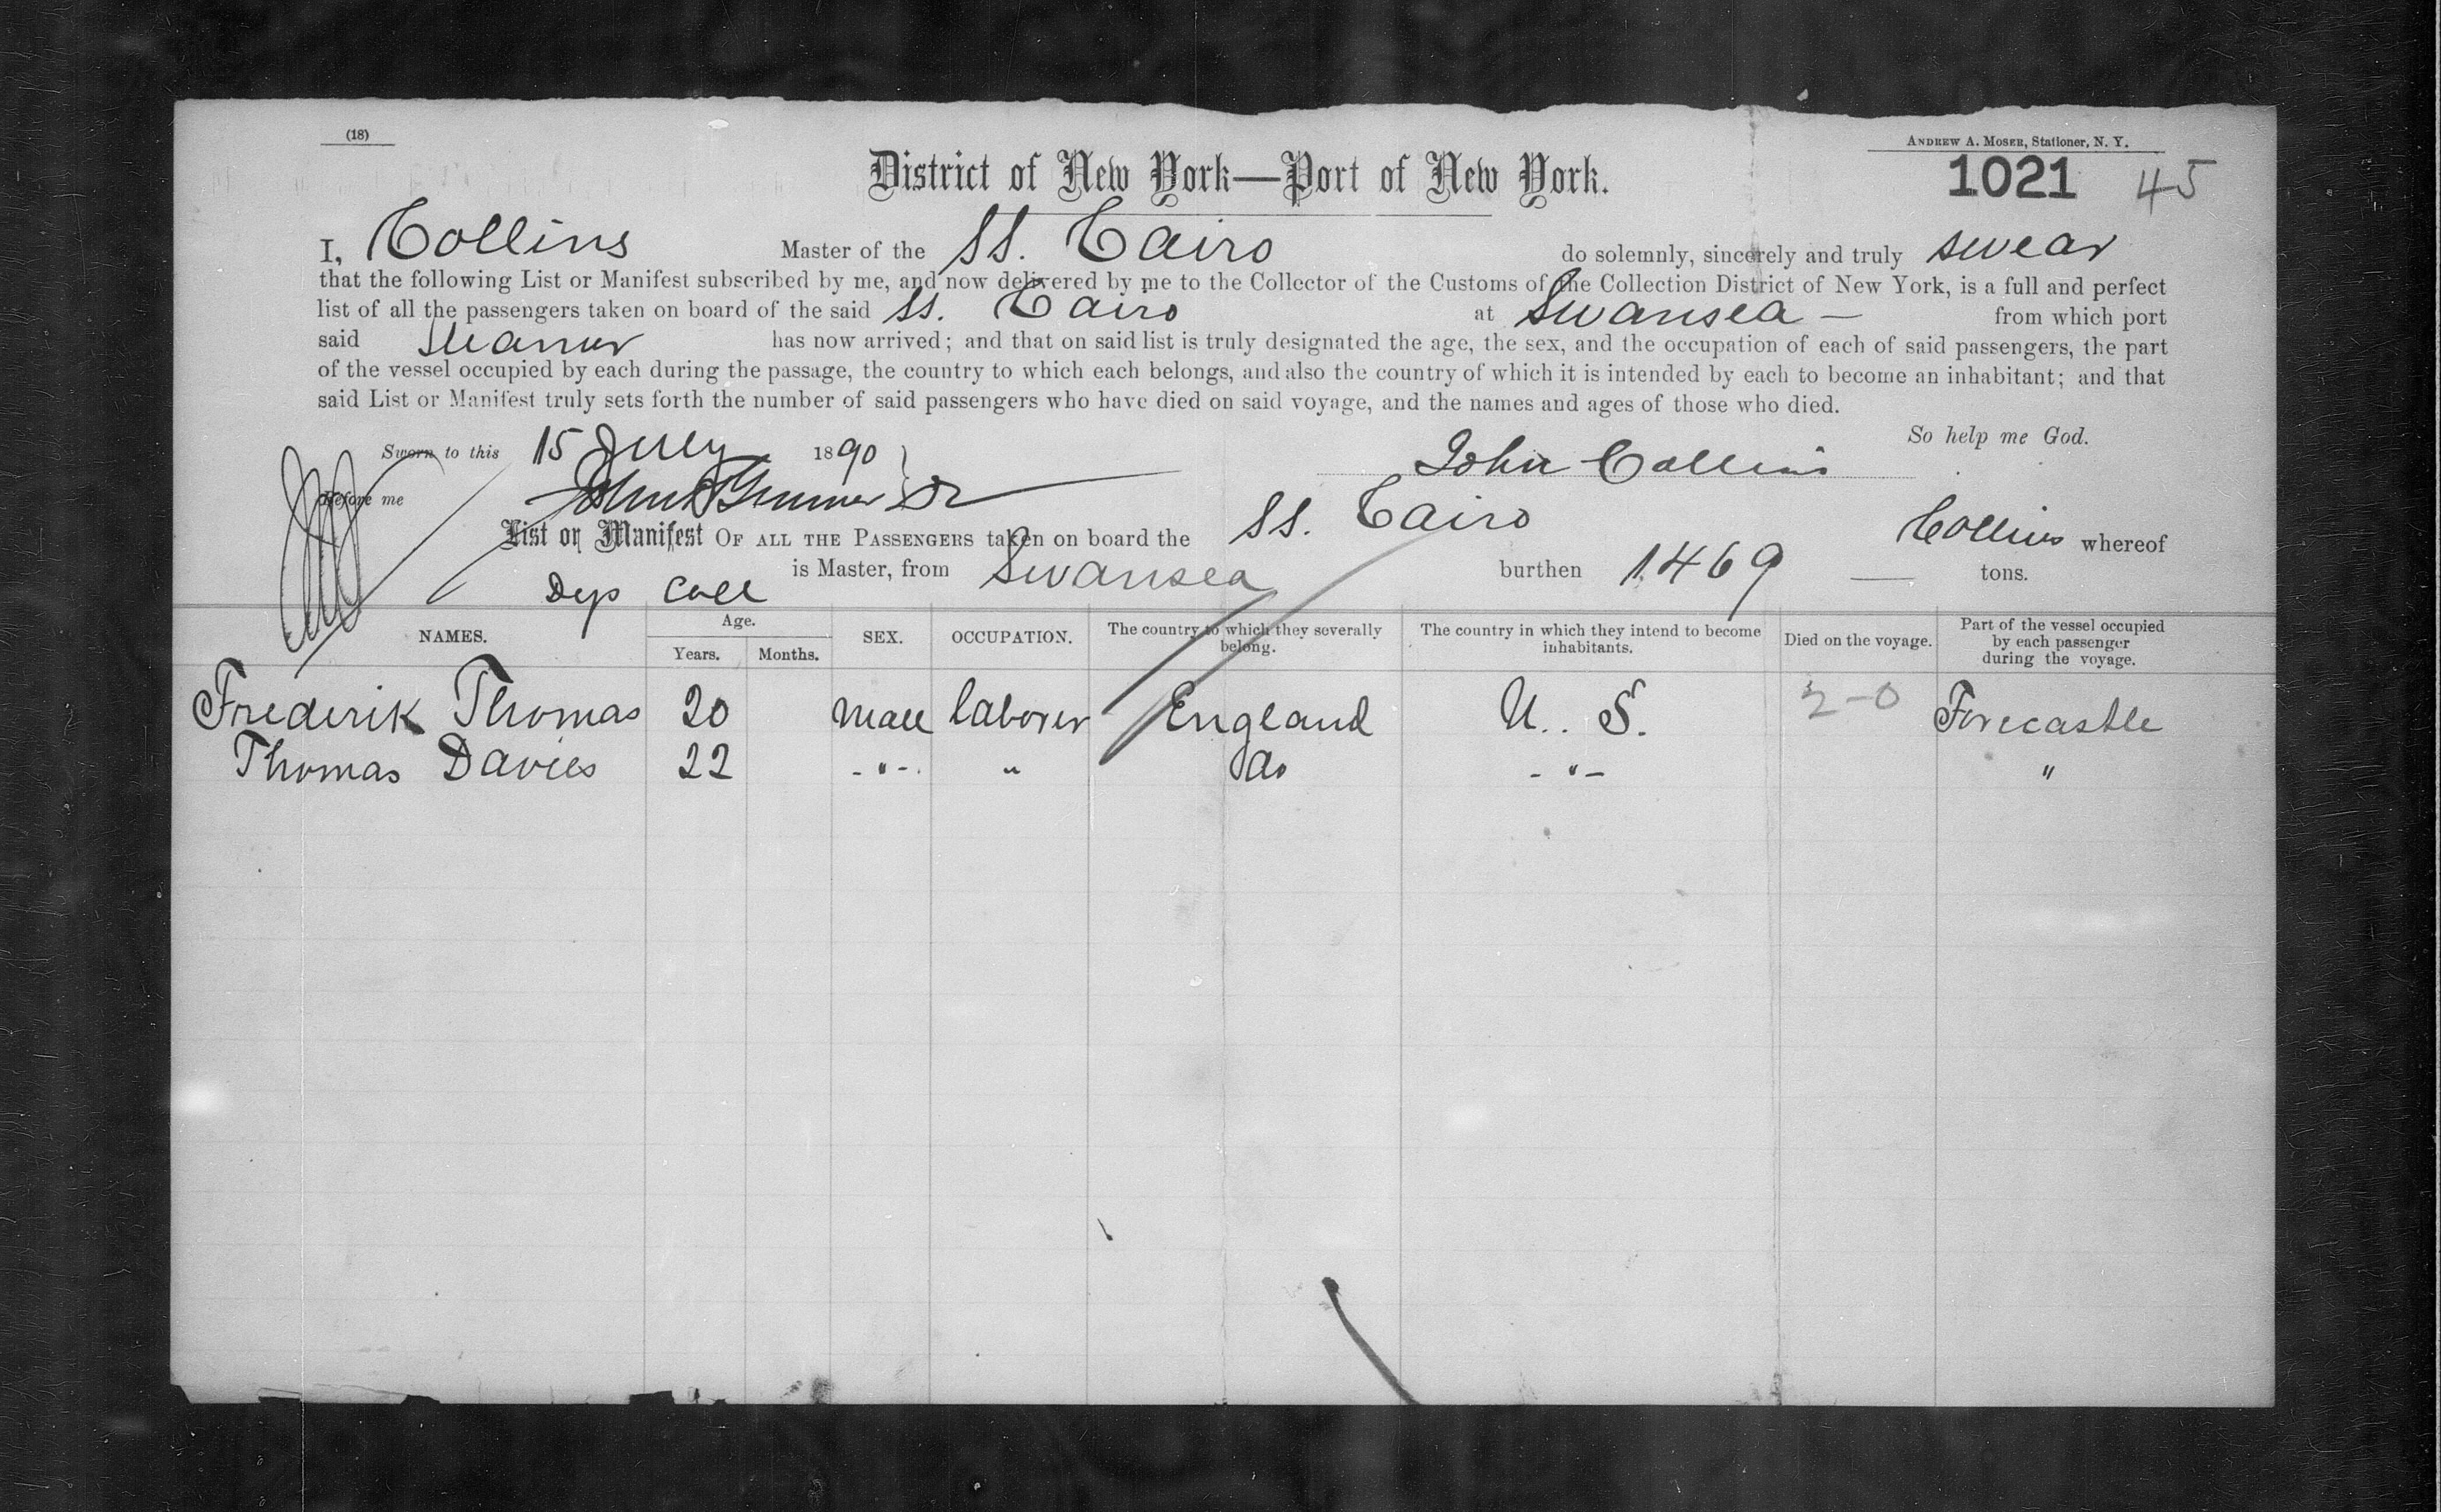 (18)
ANDREW A. MOSER, Stationer, N. Y.
District of New York—Port of New York.
1021 45
I, Collins Master of the SS. Cairo do solemnly, sincerely and truly swear
that the following List or Manifest subscribed by me, and now delivered by me to the Collector of the Customs of the Collection District of New York, is a full and perfect
list of all the passengers taken on board of the said SS. Cairo at Swansea — from which port
said Steamer has now arrived; and that on said list is truly designated the age, the sex, and the occupation of each of said passengers, the part
of the vessel occupied by each during the passage, the country to which each belongs, and also the country of which it is intended by each to become an inhabitant; and that
said List or Manifest truly sets forth the number of said passengers who have died on said voyage, and the names and ages of those who died.
So help me God.
Sworn to this 15 July 1890
John Collins
Before me John
List or Manifest OF ALL THE PASSENGERS taken on board the SS. Cairo Collins whereof
is Master, from Swansea burthen 1469 — tons.
Dep Coll
NAMES. Age. Years. Months. SEX. OCCUPATION. The country to which they severally belong. The country in which they intend to become inhabitants. Died on the voyage. Part of the vessel occupied by each passenger during the voyage.
Frederik Thomas 20 Male laborer England U.. S. 2-0 Forecastle
Thomas Davies 22 -"-. " do -"- "